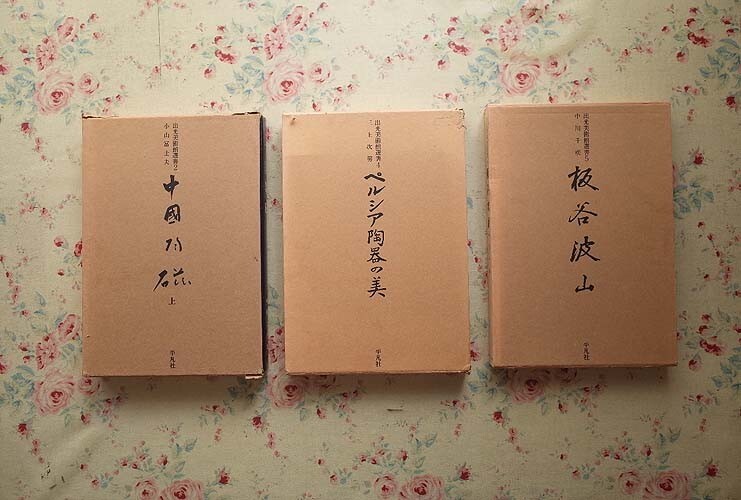 出光美術館選書2
小山冨士夫
中國陶磁 上
平凡社
出光美術館選書4
三上次男
ペルシア陶器の美
平凡社
出光美術館選書5
中川千咲
板谷波山
平凡社